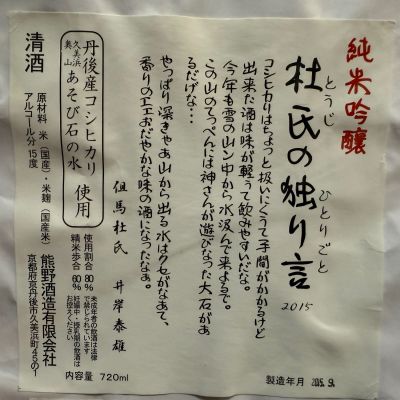 純米吟醸
杜氏の独り言
とうじ
ひとりごと
2015
コシヒカリはちょっと扱いにくうて手間がかかるけど
出来た酒は味が軽うて飲みやすいだな。
今年も雪の山ン中から水汲んで来よるで。
この山のてっぺんには神さんが遊びなった大石があ
るだけな・・・
やっぱり深きゃあ山から出る水はクセがなあて、
香りのエエおだやかな味の酒になったなぁ。
但馬杜氏 井岸泰雄
丹後産コシヒカリ
久美浜
奥山
あそび石の水
使用
使用割合 80%
精米歩合 60%
未成年者の飲酒は法律
で禁じられています
妊娠中・授乳期の飲酒は
お控えください
清酒
原材料 米(国産)・米麹(国産米)
アルコール分 15度
熊野酒造有限会社
京都府京丹後市久美浜町45の1
内容量 720ml
製造年月 2015.9.